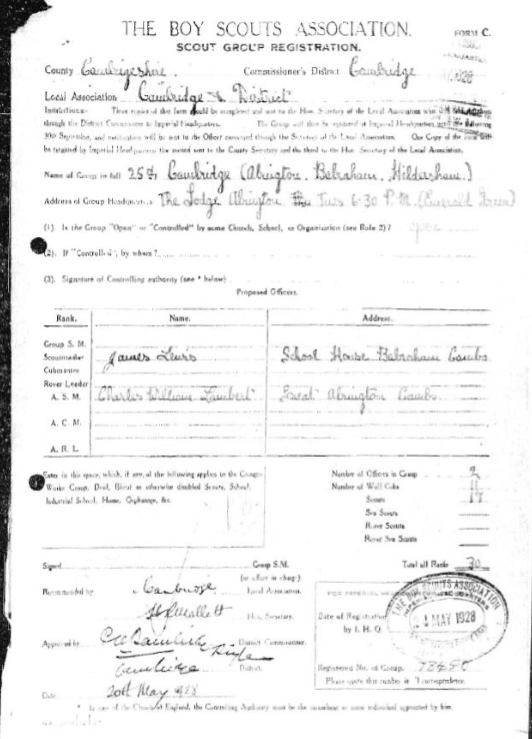 THE BOY SCOUTS ASSOCIATION.
FORM C.
SCOUT GROUP REGISTRATION.
County Cambridgeshire. Commissioner's District Cambridge
1928
Local Association Cambridge & District
Instructions:— Three copies of this form should be completed and sent to the Hon. Secretary of the Local Association who
through the District Commissioner to Imperial Headquarters. The Group will then be registered at Imperial Headquarters
30th September, and notification will be sent to the Officer concerned through the Secretary of the Local Association. One Copy of the form will
be retained by Imperial Headquarters, the second sent to the County Secretary and the third to the Hon. Secretary of the Local Association.
Name of Group in full 25th Cambridge (Abington, Babraham, Hildersham.)
Address of Group Headquarters The Lodge Abington Tues 6.30 P.M. (Emerald Green)
(1). Is the Group "Open" or "Controlled" by some Church, School, or Organisation (see Rule 2)? open
(2). If "Controlled", by whom?
(3). Signature of Controlling authority (see * below)
Proposed Officers.
Rank. Name. Address.
Group S. M.
Scoutmaster James Lewis School House Babraham Cambs
Cubmaster
Rover Leader
A. S. M. Charles William Lambert Great Abington Cambs.
A. C. M.
A. R. L.
Enter in this space, which, if any, of the following applies to the Group:—
Works Group, Deaf, Blind or otherwise disabled Scouts, School,
Industrial School, Home, Orphanage, &c.
Number of Officers in Group 2
Number of Wolf Cubs 11
Scouts 17
Sea Scouts
Rover Scouts
Rover Sea Scouts
Total all Ranks 30
Signed Group S.M.
(or officer in charge)
Recommended by Cambridge Local Association.
Hon. Secretary.
Approved by District Commissioner.
Cambridge District.
Date 20th May 1928
THE BOY SCOUTS ASSOCIATION
MAY 1928
Date of Registration
by I. H. Q.
Registered No. of Group.
Please quote this number in Correspondence.
* In case of the Church of England, the Controlling Authority must be the incumbent or some individual appointed by him.